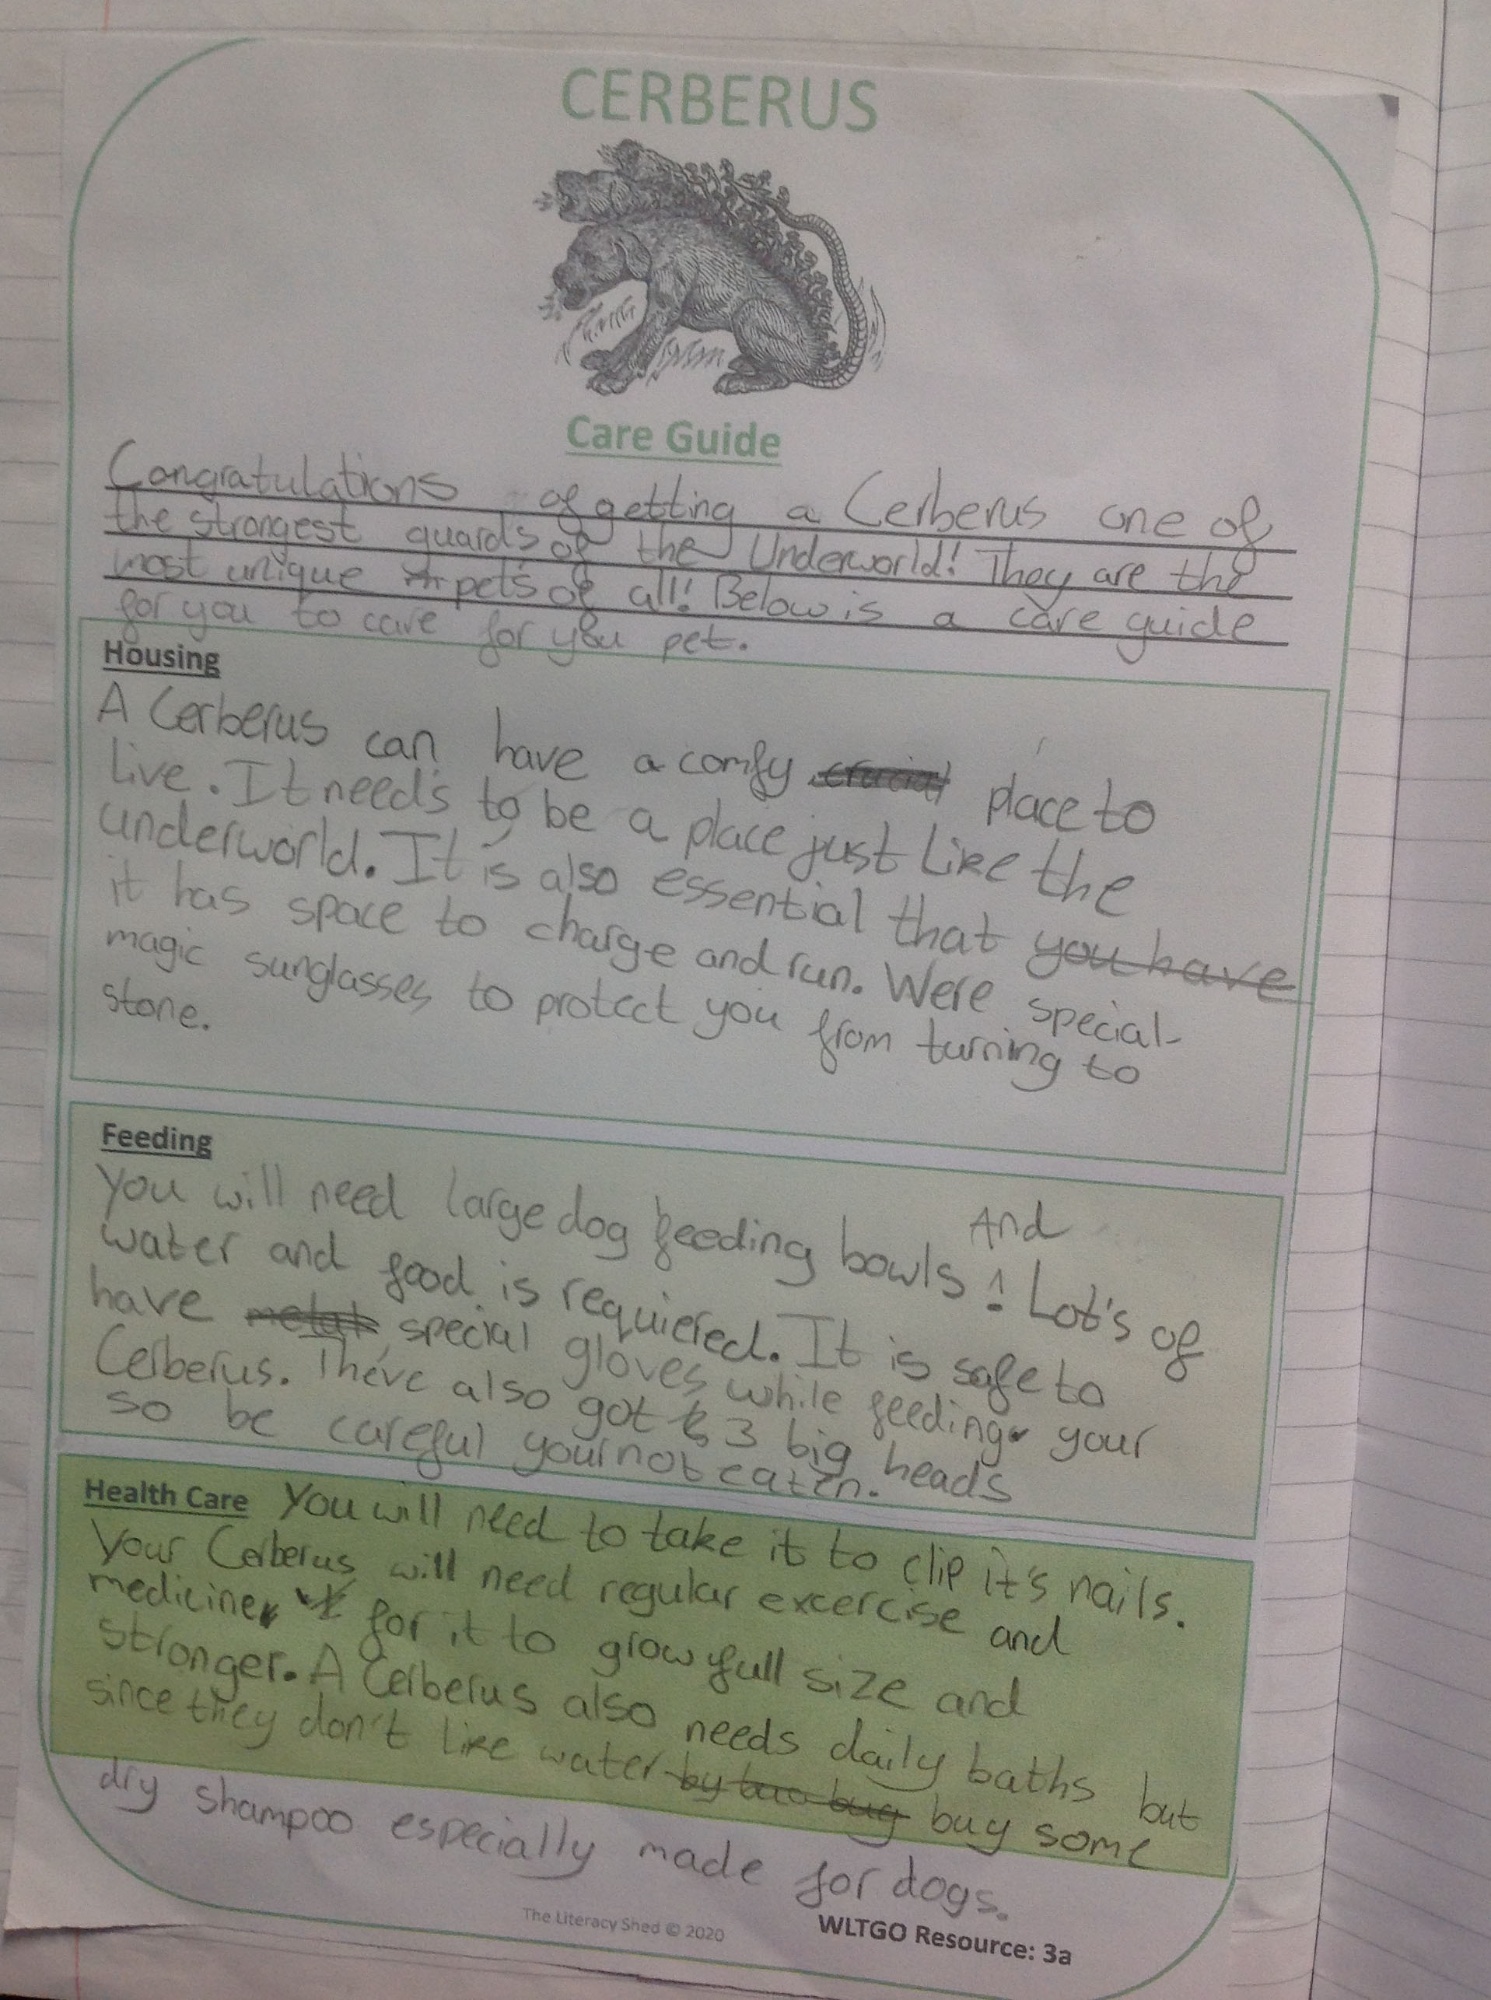 CERBERUS
Care Guide
Congratulations of getting a Cerberus one of
the strongest guards of the Underworld! They are the
most unique pets of all! Below is a care guide
for you to care for you pet.
Housing
A Cerberus can have a comfy crucial place to
live. It needs to be a place just like the
underworld. It is also essential that you have
it has space to charge and run. Were special
magic sunglasses to protect you from turning to
stone.
Feeding
You will need large dog feeding bowls! And Lot's of
water and food is requiered. It is safe to
have metal special gloves while feeding your
Cerberus. They've also got 3 big heads
so be careful your not eaten.
Health Care You will need to take it to clip it's nails.
Your Cerberus will need regular excercise and
medicine for it to grow full size and
stronger. A Cerberus also needs daily baths but
since they don't like water by buy some
dry shampoo especially made for dogs.
The Literacy Shed © 2020
WLTGO Resource: 3a